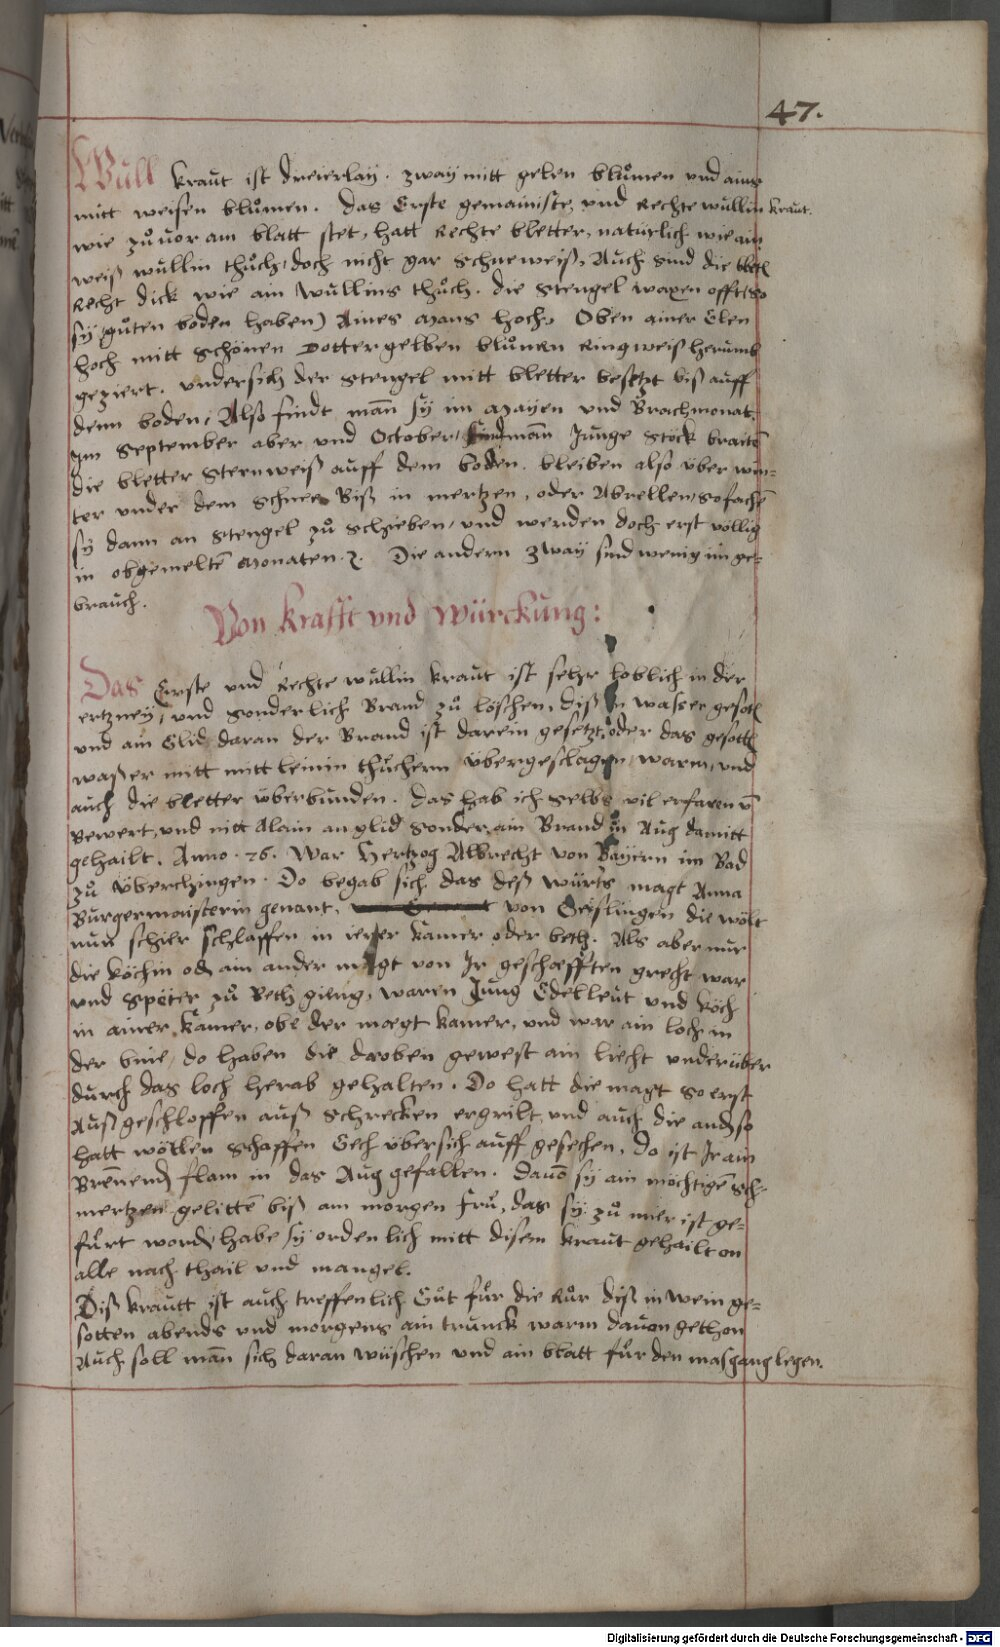 47.
Wull kraut ist dreierlay. zway mitt gelen blůmen vnd ains
mitt weisen blůmen. das Erste gemainiste vnd Rechte wullin kraut.
wie zůuor am blatt stet, hatt Rechte bletter, natürlich wie ain
weiß wullin thůch, doch nicht gar schneweiß, Auch sind die blett
Recht dick wie ain wullins thůch. die stengel waxen offt (so
sy gůten boden haben) Aines mans hoch, Oben ainer Elen
hoch mitt schönen dottergelben blůmen Ringweiß herumb
geziert. vndersich der stengel mitt bletter besetzt biß auff
denn boden, Also findt man sy im mayen und Brachmonat.
Im September aber vnd October findt man Junge stöck braiten
die bletter sternweiß auff dem boden. bleiben also über win-
ter vnder dem schnee Biß in mertzen, oder Abrellen, so fachē
sy dann an stengel zů schieben, vnd werden doch erst völlig
in obgemeltē monaten. Die andern zway sind wenig im ge-
brauch.
Von krafft vnd würckung:
Das Erste vnd Rechte wullin kraut ist sehr loblich in der
ertzney, vnd sonderlich Brand zů löschen, diß in wasser gesott
vnd ain Glid daran der Brand ist darein gesetzt, oder das gesott
waßer mitt leinin thüchern übergeschlagen, warm, vnd
auch die bletter überbunden. das hab ich selbs vil erfaren vn̄
Bewert, vnd nitt Alain an glid sonder ain Brand in Aug damitt
gehailt. Anno. 76. War Hertzog Albrecht von Bayern im Bad
zů Überchingen. Do begab sich das deß würts magt Anna
Burgermaisterin genant, von Geislingen die wolt
nun schier schlaffen in ierer kamer oder beth. Als aber nur
die köchin od ain ander magt von Ir geschefften grecht war
vnd später zů Beth gieng, waren Jung Edelleut vnd köch
in ainer kamer, obe der maegt kamer, vnd war ain loch in
der bine, do haben die droben gewest ain liecht vnderüber
durch das loch herab gehalten. Do hatt die magt so erst
Auß geschloffen auß schrecken ergrilt, vnd auch die and so
hatt wöllen schaffen Gech übersich auff gesechen, do ist Ir ain
Brenend flam in das Aug gefallen. dauō sy ain mächtigē sch-
mertzen gelittē biß am morgen frů, das sy zů mier ist ge-
fürt word, habe sy ordenlich mitt disem kraut gehailt on
alle nach thail vnd mangel.
Diß krautt ist auch treffenlich Gůt für die Růr diß in wein ge-
sotten abends vnd morgens ain trunck warm dauon gethon
Auch soll man sich daran wüschen vnd ain blatt für den masgang legen.
Digitalisierung gefördert durch die Deutsche Forschungsgemeinschaft - DFG